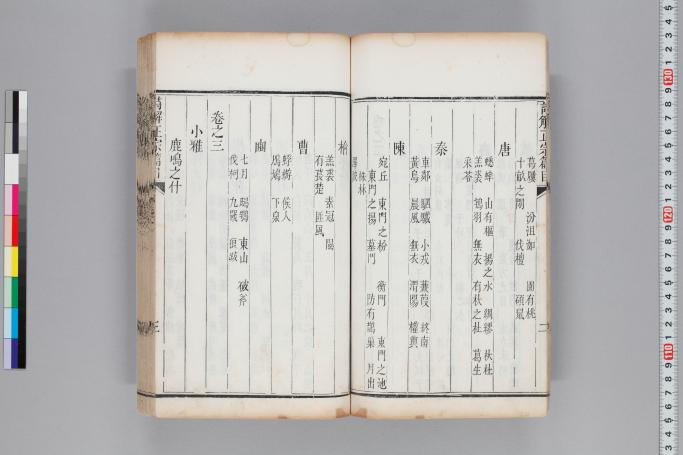 詩解正宗篇目
葛屨 汾沮洳 園有桃
十畝之閒 伐檀 碩鼠
唐
蟋蟀 山有樞 揚之水 綢繆 杕杜
羔裘 鴇羽 無衣 有杕之杜 葛生
采苓
秦
車鄰 駟驖 小戎 蒹葭 終南
黃鳥 晨風 無衣 渭陽 權輿
陳
宛丘 東門之枌 衡門 東門之池
東門之楊 墓門 防有鵲巢 月出
株林
檜
羔裘 素冠 隰
有萇楚 匪風
曹
蜉蝣 候人
鳲鳩 下泉
豳
七月 鴟鴞 東山 破斧
伐柯 九罭 狼跋
卷之三
小雅
鹿鳴之什
三
二